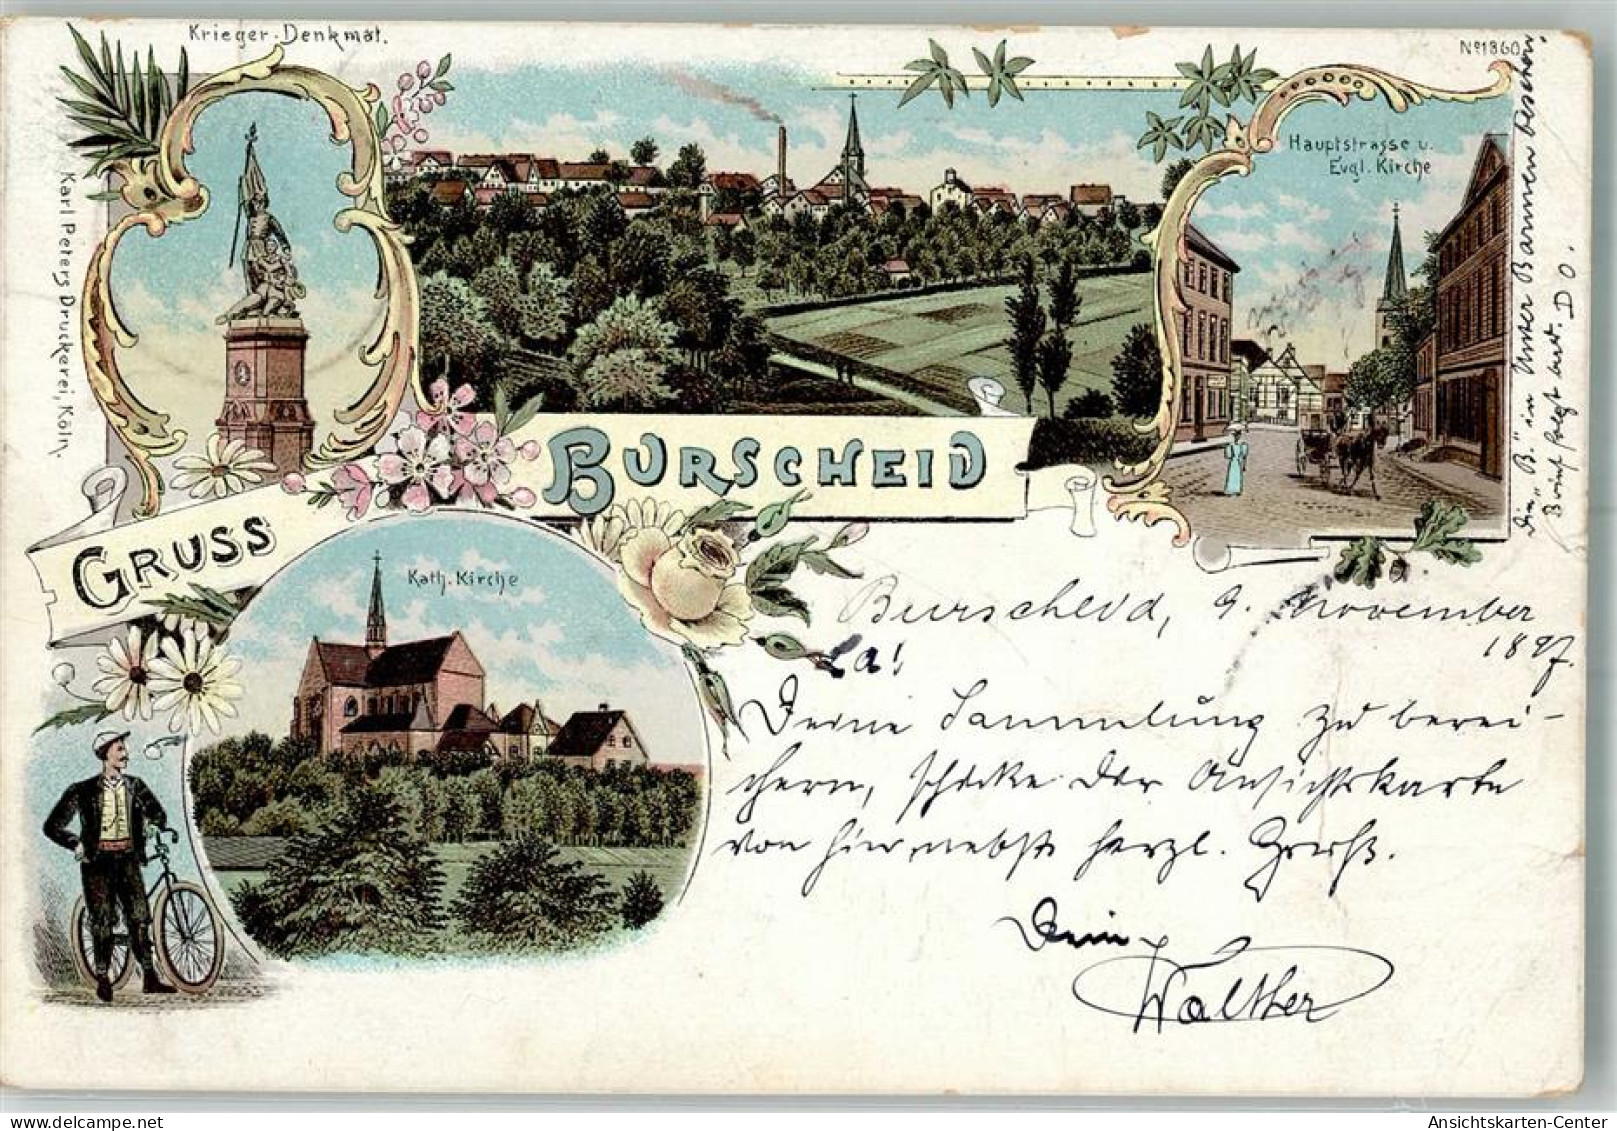 Krieger-Denkmal.
Nº 1860
Karl Peters Druckerei, Köln.
Hauptstrasse u.
Evgl. Kirche
GRUSS
BURSCHEID
Kath. Kirche
Burscheid, 9. November
1897.
La!
Deine Sammlung zu berei-
chern, schicke Dir Ansichtskarte
von hier nebst herzl. Gruß.
Dein
Walther
"B." in Unter Barmen
Brief folgt D O.
Ansichtskarten-Center